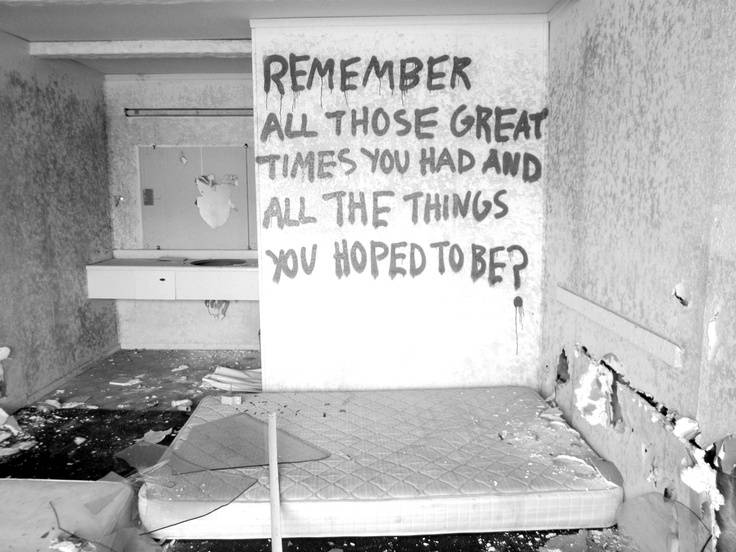 REMEMBER
ALL THOSE GREAT
TIMES YOU HAD AND
ALL THE THINGS
YOU HOPED TO BE?